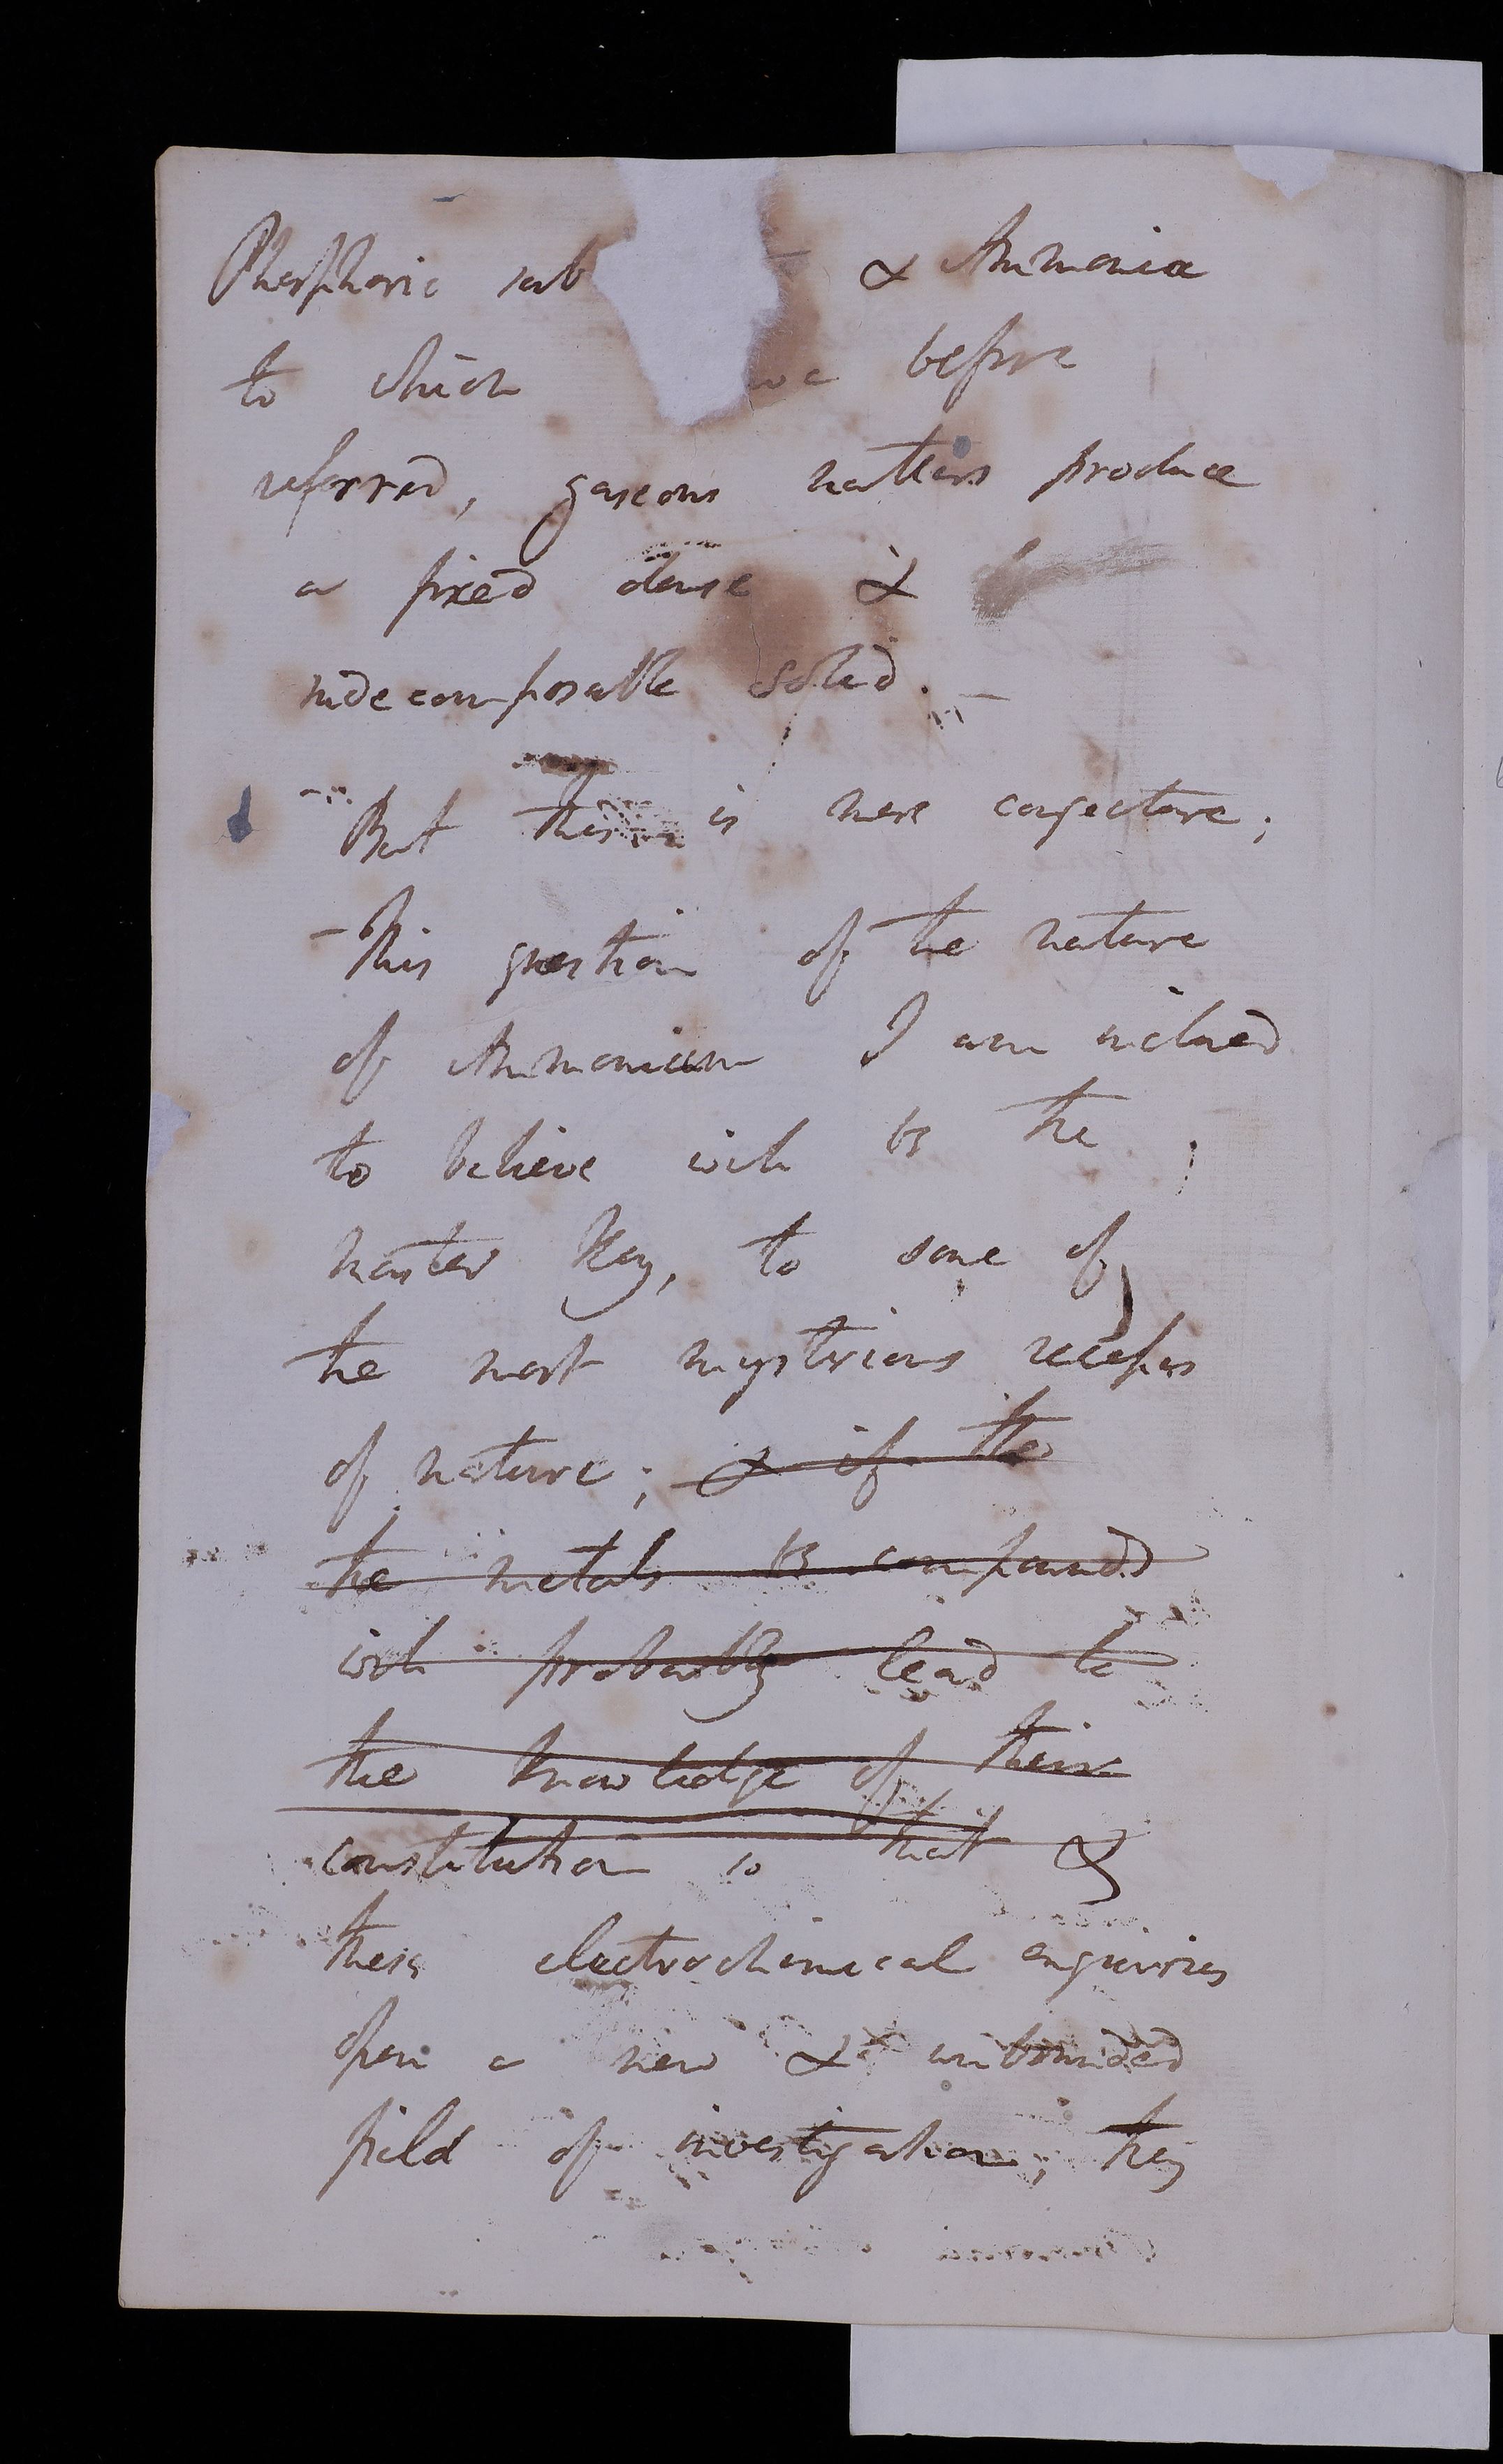 Phosphoric sub & Ammonia
to which before
referred, gaseous matters produce
a fixed dense &
undecomposable solid. –
But this is mere conjecture;
– This question of the nature
of Ammonium I am inclined
to believe will be the
master Key, to some of
the most mysterious recesses
of nature; & if the
the metals be compounds
will probably lead to
the knowledge of their
constitution so that &
these electrochemical enquiries
open a new & unbounded
field of investigation; they